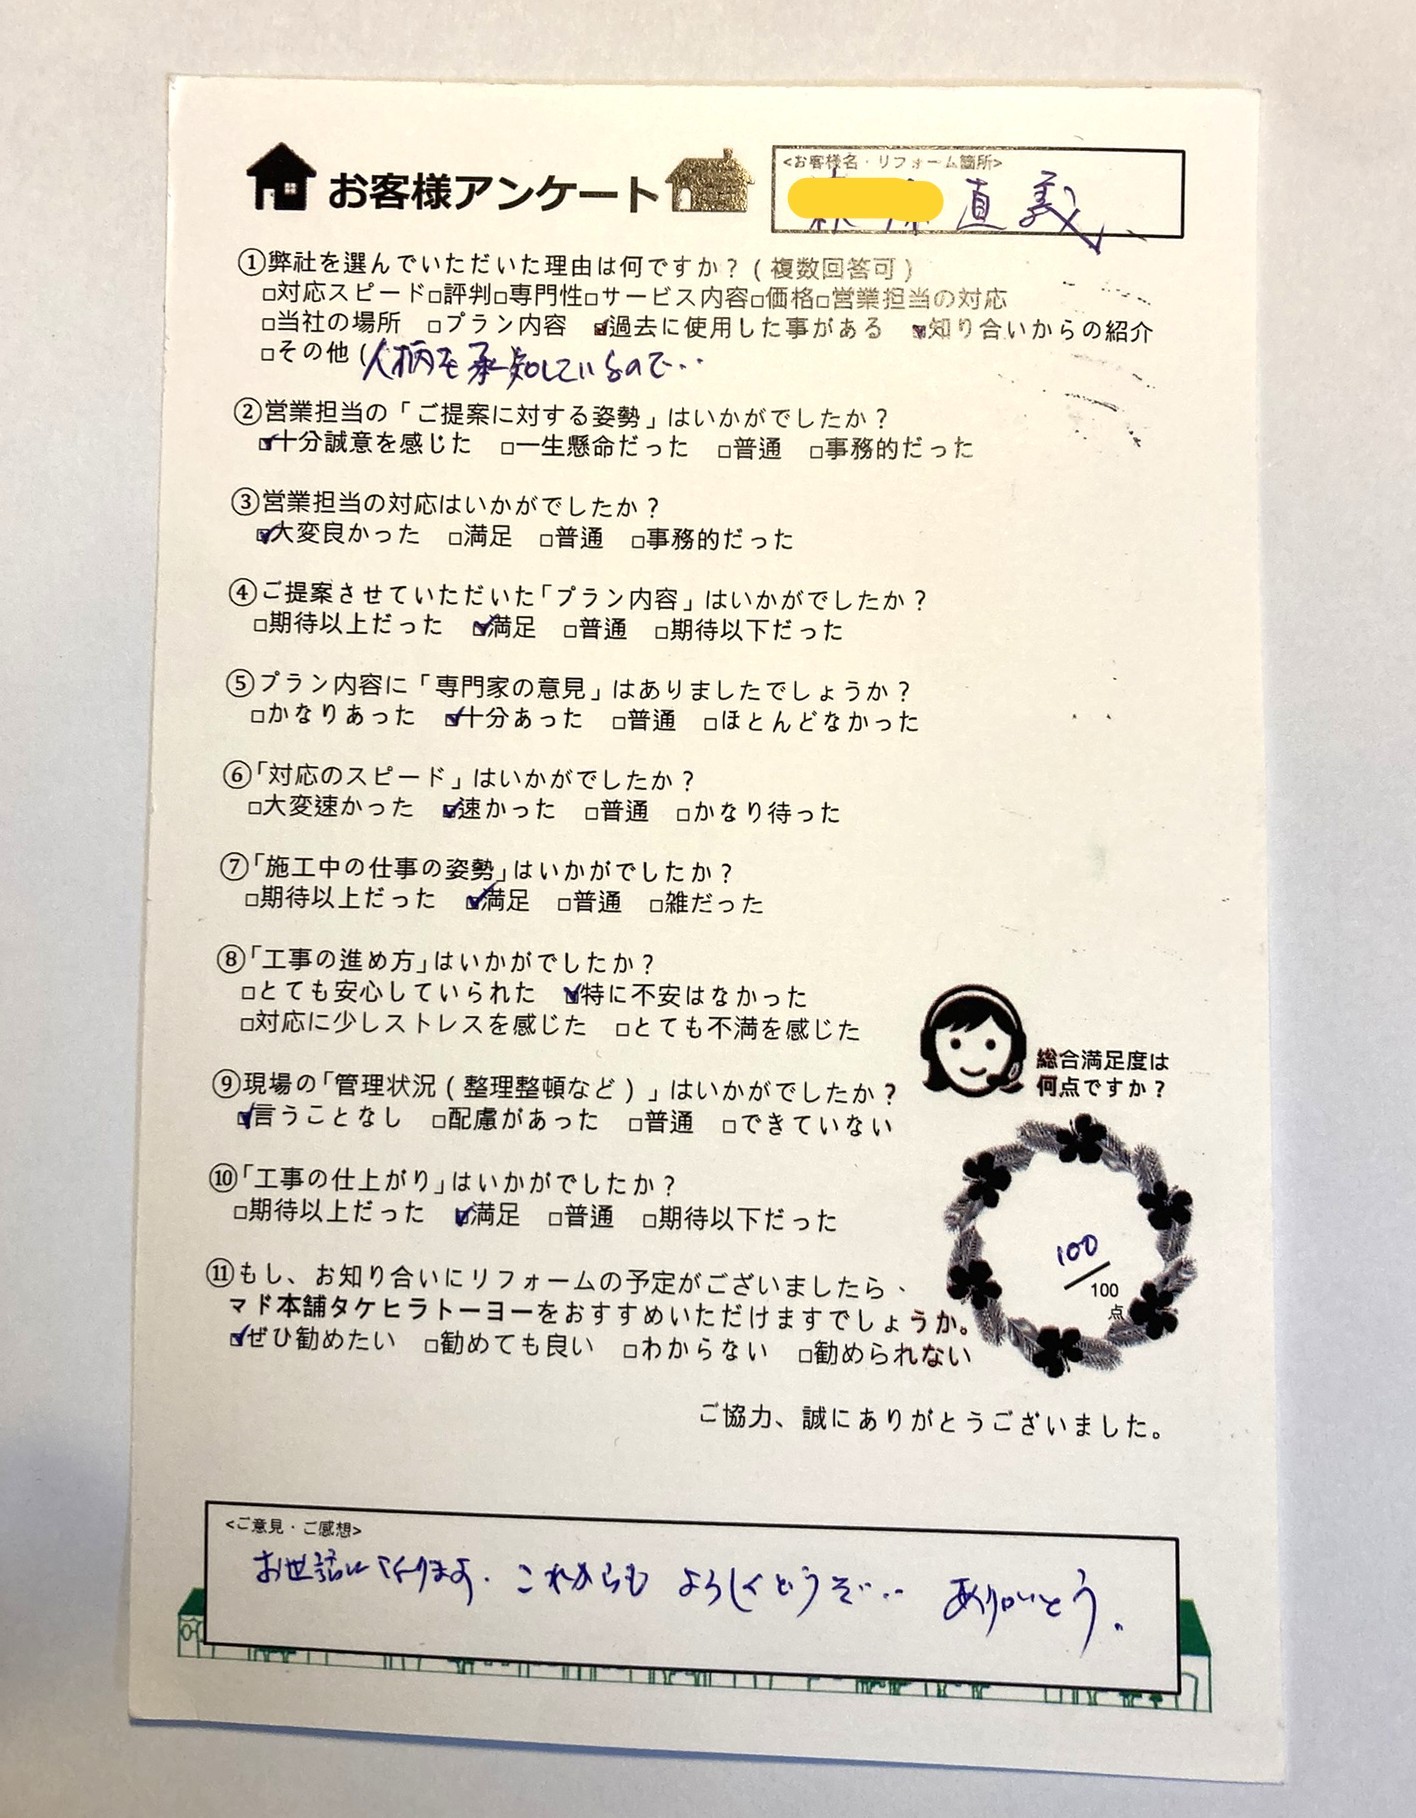 お客様アンケート
<お客様名・リフォーム箇所>
直義
①弊社を選んでいただいた理由は何ですか？(複数回答可)
□対応スピード□評判□専門性□サービス内容□価格□営業担当の対応
□当社の場所 □プラン内容 ☑過去に使用した事がある ☑知り合いからの紹介
□その他(人柄を承知しているので‥
②営業担当の「ご提案に対する姿勢」はいかがでしたか？
☑十分誠意を感じた □一生懸命だった □普通 □事務的だった
③営業担当の対応はいかがでしたか？
☑大変良かった □満足 □普通 □事務的だった
④ご提案させていただいた「プラン内容」はいかがでしたか？
□期待以上だった ☑満足 □普通 □期待以下だった
⑤プラン内容に「専門家の意見」はありましたでしょうか？
□かなりあった ☑十分あった □普通 □ほとんどなかった
⑥「対応のスピード」はいかがでしたか？
□大変速かった ☑速かった □普通 □かなり待った
⑦「施工中の仕事の姿勢」はいかがでしたか？
□期待以上だった ☑満足 □普通 □雑だった
⑧「工事の進め方」はいかがでしたか？
□とても安心していられた ☑特に不安はなかった
□対応に少しストレスを感じた □とても不満を感じた
⑨現場の「管理状況(整理整頓など)」はいかがでしたか？
☑言うことなし □配慮があった □普通 □できていない
⑩「工事の仕上がり」はいかがでしたか？
□期待以上だった ☑満足 □普通 □期待以下だった
⑪もし、お知り合いにリフォームの予定がございましたら、
マド本舗タケヒラトーヨーをおすすめいただけますでしょうか。
☑ぜひ勧めたい □勧めても良い □わからない □勧められない
総合満足度は
何点ですか？
100
100
点
ご協力、誠にありがとうございました。
<ご意見・ご感想>
お世話になります. これからも よろしくどうぞ‥ ありがとう.